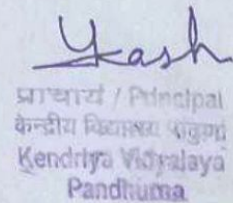 Yash
प्राचार्य / Principal
केन्द्रीय विद्यालय पांढुर्णा
Kendriya Vidyalaya
Pandhurna